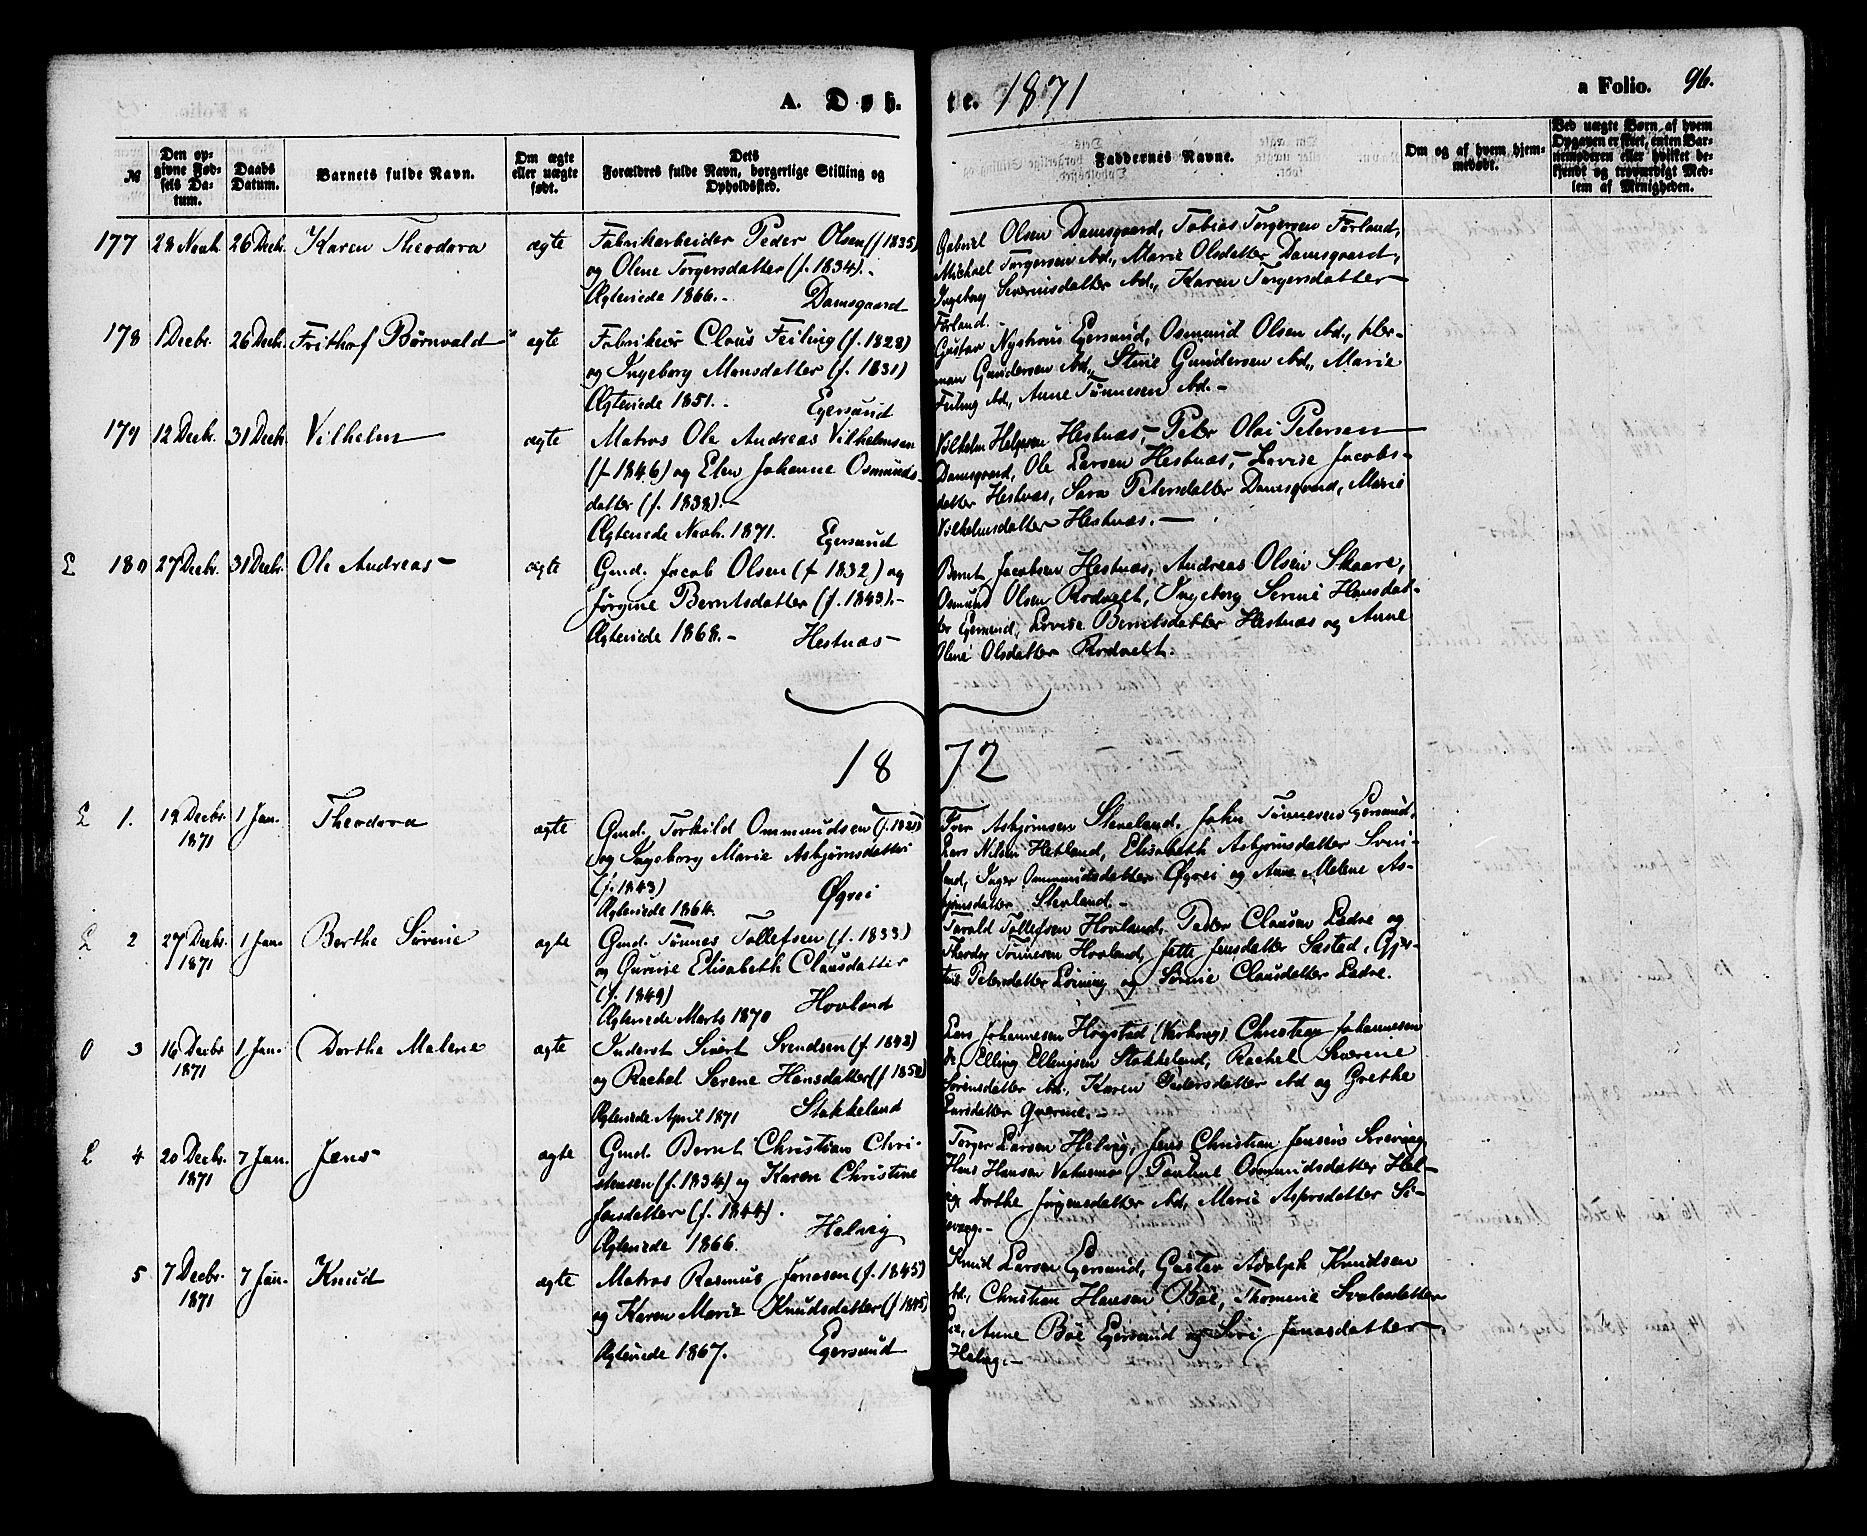 A. Døb- te. 1871 a Folio. 96.
№
Den op-
givne Fød-
sels Da-
tum.
Daabs
Datum.
Barnets fulde Navn.
Om ægte
eller uægte
født.
Dets
Forældres fulde Navn, borgerlige Stilling og
Opholdssted.
Faddernes Navne.
Om og af hvem hjem-
medøbt.
Ved uægte Børn, af hvem
Opgaven er skeet, enten Bar-
nemoderen eller hvilket be-
kjendt og troværdigt Med-
lem af Menigheden.
177 28 Novb. 26 Decb. Karen Theodora ægte
Fabrikarbeider Peder Olsen (f. 1835)
og Olene Torgersdatter (f. 1834).-
Ægteviede 1866.- Damsgaard
Gabriel Olsen Damsgaard, Tobias Torgersen Förland,
Michael Torgersen Ad., Marie Olsdatter Damsgaard,
Ingeborg Severinsdatter Ad., Karen Torgersdatter
Förland.
178 1 Decbr. 26 Decb. Frithof Börnvald ægte
Fabrikeier Claus Feiling (f. 1828)
og Ingeborg Monsdatter (f. 1831)
Ægteviede 1851.- Egersund
Gustav Nyström Egersund, Osmund Olsen Ad., Her-
man Gundersen Ad., Stine Gundersen Ad., Marie
Feiling Ad., Anne Tönnesen Ad.-
179 12 Decbr. 31 Decb. Vilhelm ægte
Matros Ole Andreas Vilhelmsen
(f. 1846) og Elen Johanne Osmunds-
datter (f. 1838).-
Ægteviede Novb. 1871. Egersund
Vilhelm Helgesen Hestnæs, Peter Olai Petersen
Damsgaard, Ole Larsen Hestnæs, Lovise Jacobs-
datter Hestnæs, Sara Petersdatter Damsgaard, Marie
Vilhelmsdatter Hestnæs.-
L 180 27 Decbr. 31 Decb. Ole Andreas ægte
Gmd. Jacob Olsen (f. 1832) og
Jörgine Berntsdatter (f. 1843).-
Ægteviede 1868.- Hestnæs
Bernt Jacobsen Hestnæs, Andreas Olsen Skaare,
Osmund Olsen Rodvelt, Ingeborg Serine Hansdat-
ter Egersund, Lovise Berntsdatter Hestnæs og Anne
Olene Olsdatter Rodvelt.
1872
L 1. 19 Decbr. 1871 1 Jan. Theodora ægte
Gmd. Torkild Ommundsen (f. 1825)
og Ingeborg Marie Asbjörnsdatter
(f. 1843)
Ægteviede 1864. Øgrei
Iver Asbjörnsen Steneland, John Tönnesen Egersund,
Lars Nilsen Hetland, Elisabeth Asbjörnsdatter Svin-
land, Inger Ommundsdatter Øgrei og Anne Malene As-
björnsdatter Stenland.-
L 2 27 Decbr. 1871 1 Jan. Berthe Sörine ægte
Gmd. Tönnes Tollefsen (f. 1833)
og Gurine Elisabeth Clausdatter
(f. 1849)
Ægteviede Marts 1870 Hovland
Torald Tollefsen Hovland, Peder Clausen Ladre og
Theodor Tönnesen Hovland, Jette Jensdatter Sæstad, Gjer-
tine Petersdatter Löining og Sörine Clausdatter Ladre.
O 3 16 Decbr 1871 1 Jan. Dorthe Malene ægte
Inderst Sivert Svendsen (f. 1848)
og Rachel Serene Hansdatter (f. 1850)
Ægteviede April 1871 Stokkeland
Lars Johannesen Högstad (Varhoug), Christian Johannesen
Elling Ellingsen Stokkeland, Rachel Severine
Sörensdatter Ad., Karen Pedersdatter Ad og Grethe
Larsdatter Qverme.-
L 4 20 Decbr. 1871 7 Jan. Jens ægte
Gmd. Bernt Christian Chri-
stensen (f. 1834) og Karen Christine
Jensdatter (f. 1844).
Ægteviede 1866. Helvig
Torger Larsen Helvig, Jens Christian Jensen Sirevaag,
Hans Hansen Vatnemo, Pauline Osmundsdatter Hel-
vig, Dorthe Jörgensdatter Ad., Marie Aspersdatter Si-
revaag.-
5 7 Decbr. 1871 7 Jan. Knud ægte
Matros Rasmus Jonasen (f. 1845)
og Karen Marie Knudsdatter (f. 1845)
Ægteviede 1867. Egersund
Knud Larsen Egersund, Gustav Adolph Knudsen
Ad., Christian Hansen Böe, Thomine Svalesdatter
Anne Böe Egersund og Siri Jonasdatter
Helvig.-